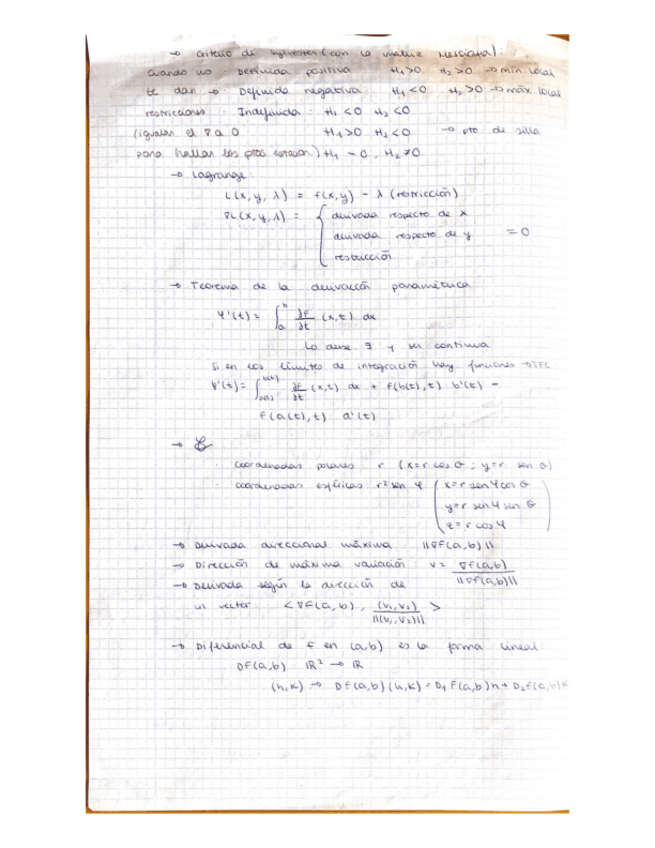 → Criterio de Sylvester (con la matriz Hessiana):
Cuando no · Definida positiva H₁>0 H₂>0 → mín local
te dan → · Definida negativa: H₁<0 H₂>0 → máx local
restricciones · Indefinida: H₁<0 H₂<0
(igualar el ∇ a 0 H₁>0 H₂<0 → pto de silla
para hallar los ptos estacion.) H₁ = 0, H₂≠0
→ Lagrange:
L(x, y, λ) = f(x,y) − λ (restricción)
∇L(x, y, λ) = { derivada respecto de x
derivada respecto de y = 0
restricción
→ Teorema de la derivación paramétrica
Ψ'(t) = ∫ₐᵇ ∂F/∂t (x,t) dx
La debe ∃ y ser continua
Si en los límites de integración hay funciones → TFC
Ψ'(t) = ∫ ∂F/∂t (x,t) dx + f(b(t), t) · b'(t) −
f(a(t), t) · a'(t)
· Coordenadas polares r (x=r cos θ ; y=r sen θ)
· coordenadas esféricas r² sen φ ( x=r sen φ cos θ
y=r sen φ sen θ
z=r cos φ )
→ Derivada direccional máxima: ||∇F(a,b)||
→ Dirección de máxima variación: v = ∇F(a,b) / ||∇F(a,b)||
→ Derivada según la dirección de
un vector: <∇F(a,b), (v₁,v₂) / ||(v₁,v₂)|| >
→ Diferencial de F en (a,b) es la forma lineal:
DF(a,b) : ℝ² → ℝ
(h,k) → DF(a,b)(h,k) = D₁F(a,b)h + D₂F(a,b)k